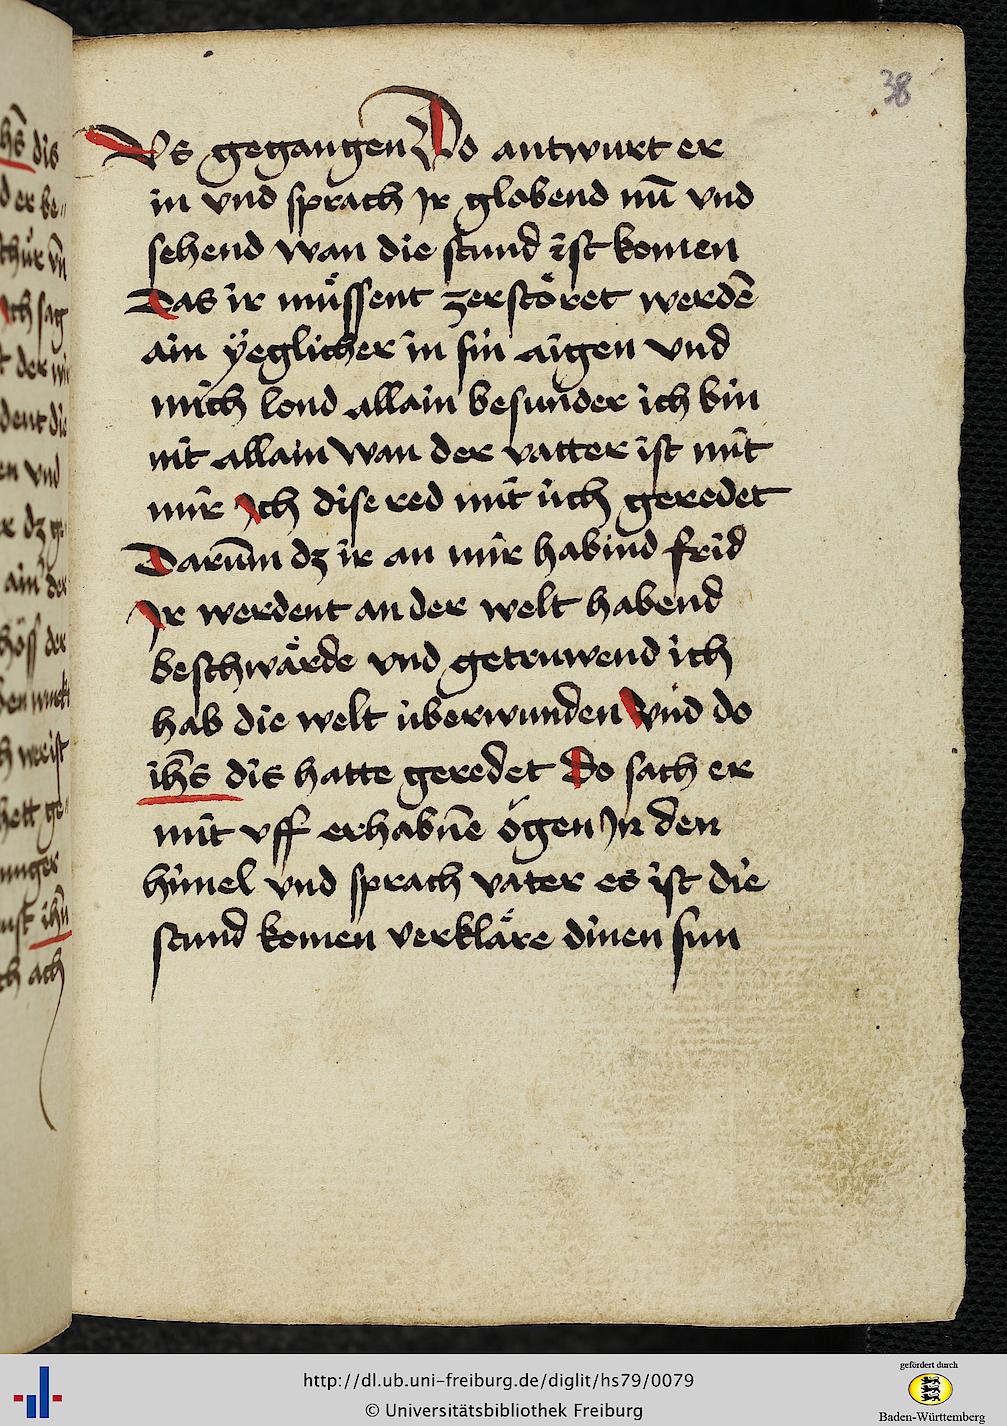 38
Vs gegangen Do antwurt er
in vnd sprach Jr globend nu̅ vnd
sehend wan die stund ist komen
Das ir mu̎ssent zersto̎ret werde̅
ain ÿeglicher in sin aigen vnd
mich lond allain besunder ich bin
nit allain wan der vatter ist mit
mir Ich dise red mit üch geredet
Daru̅m dz ir an mir habind frid
Jr werdent an der welt habend
beschwa̎rde vnd getruwend ich
hab die welt überwunden Vnd do
ih̅s dis hatte geredet Do sach er
mit vff erhabn̅e ögen Jn den
himel vnd sprach vater es ist die
stund komen verkla̎re dinen sun
http://dl.ub.uni-freiburg.de/diglit/hs79/0079
© Universitätsbibliothek Freiburg
gefördert durch
Baden-Württemberg